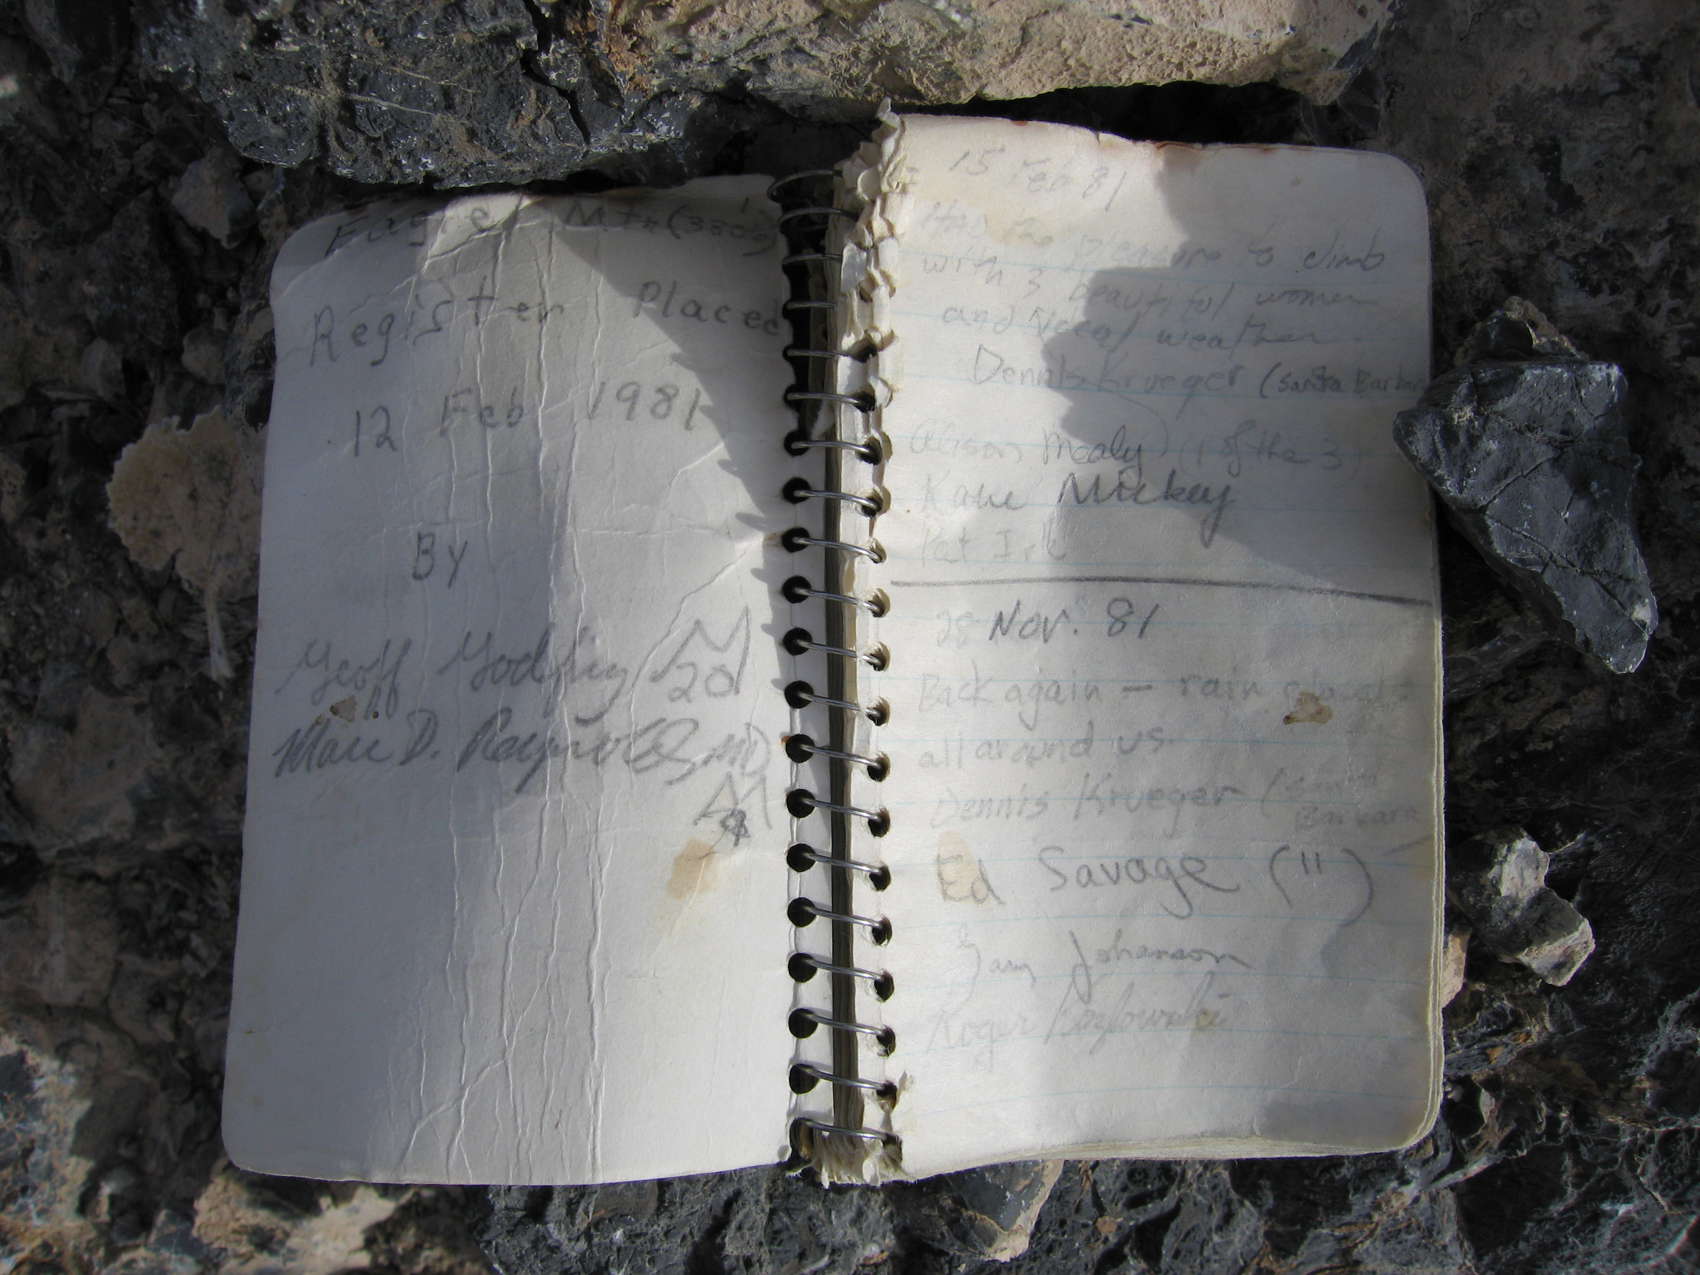 Eagle Mtn (3806')
Register Placed
12 Feb 1981
By
Geoff Godfrey
20
Marc D.
15 Feb 81
Had the pleasure to climb
with 3 beautiful women
and ideal weather
Dennis Krueger (Santa Barbara
Alison Mealy (1 of the 3)
Mickey
Pat
28 Nov. 81
Back again — rain clouds
all around us.
Dennis Krueger (Santa
Barbara
Ed Savage (")
Johanson
Roger